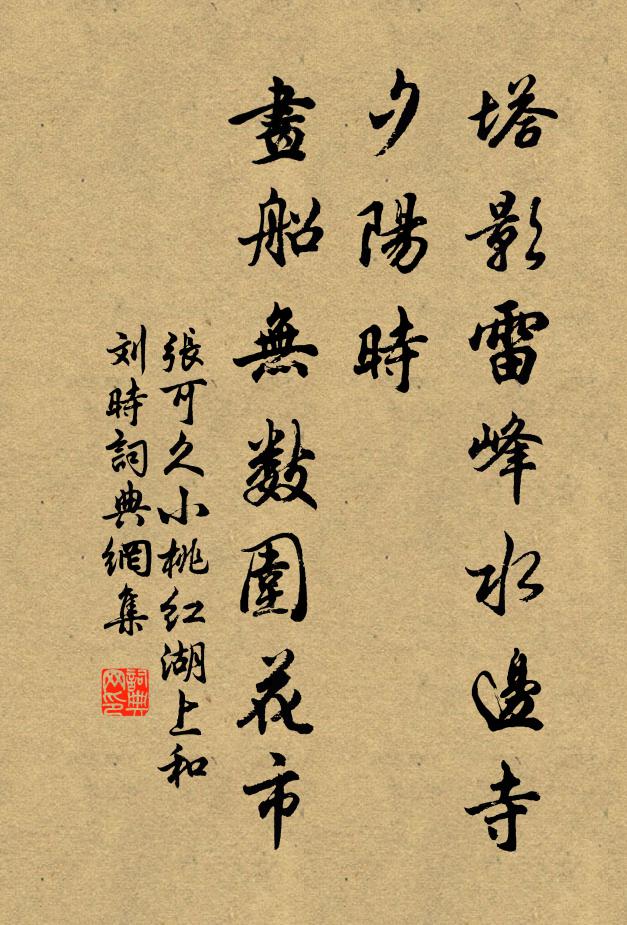 塔影雷峰水邊寺
夕陽時
畫船無数圍花市
張可久小桃红湖上和
刘時詞典網集
詞典
网印